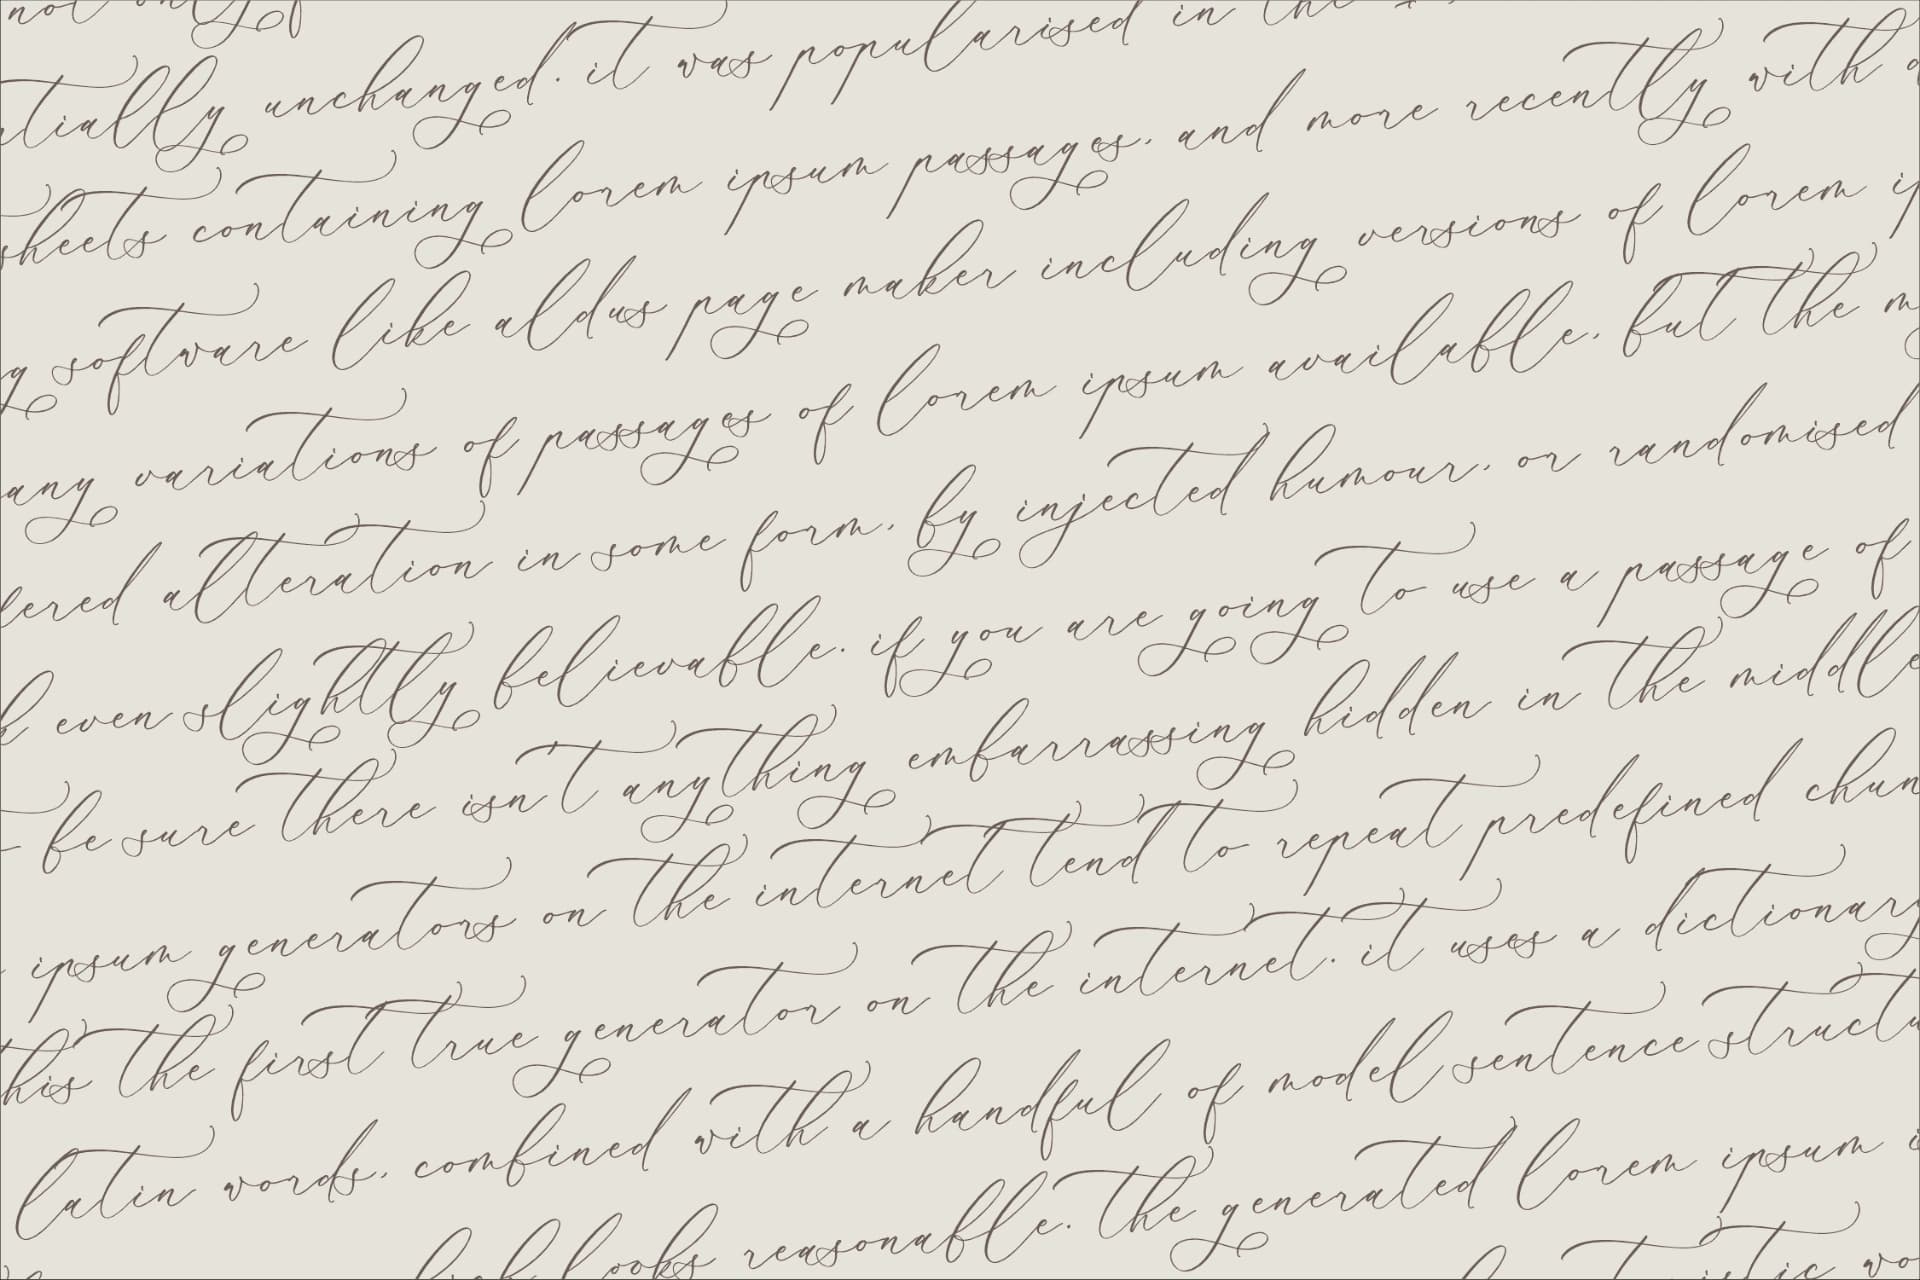 not only
unchanged. it was popularised in the
sheets containing lorem ipsum passages, and more recently with
software like aldus page maker including versions of lorem
any variations of passages of lorem ipsum available, but the
alteration in some form, by injected humour, or randomised
even slightly believable. if you are going to use a passage of
be sure there isn't anything embarrassing hidden in the middle
ipsum generators on the internet tend to repeat predefined chun
this the first true generator on the internet. it uses a dictionary
latin words, combined with a handful of model sentence structu
looks reasonable. the generated lorem ipsum